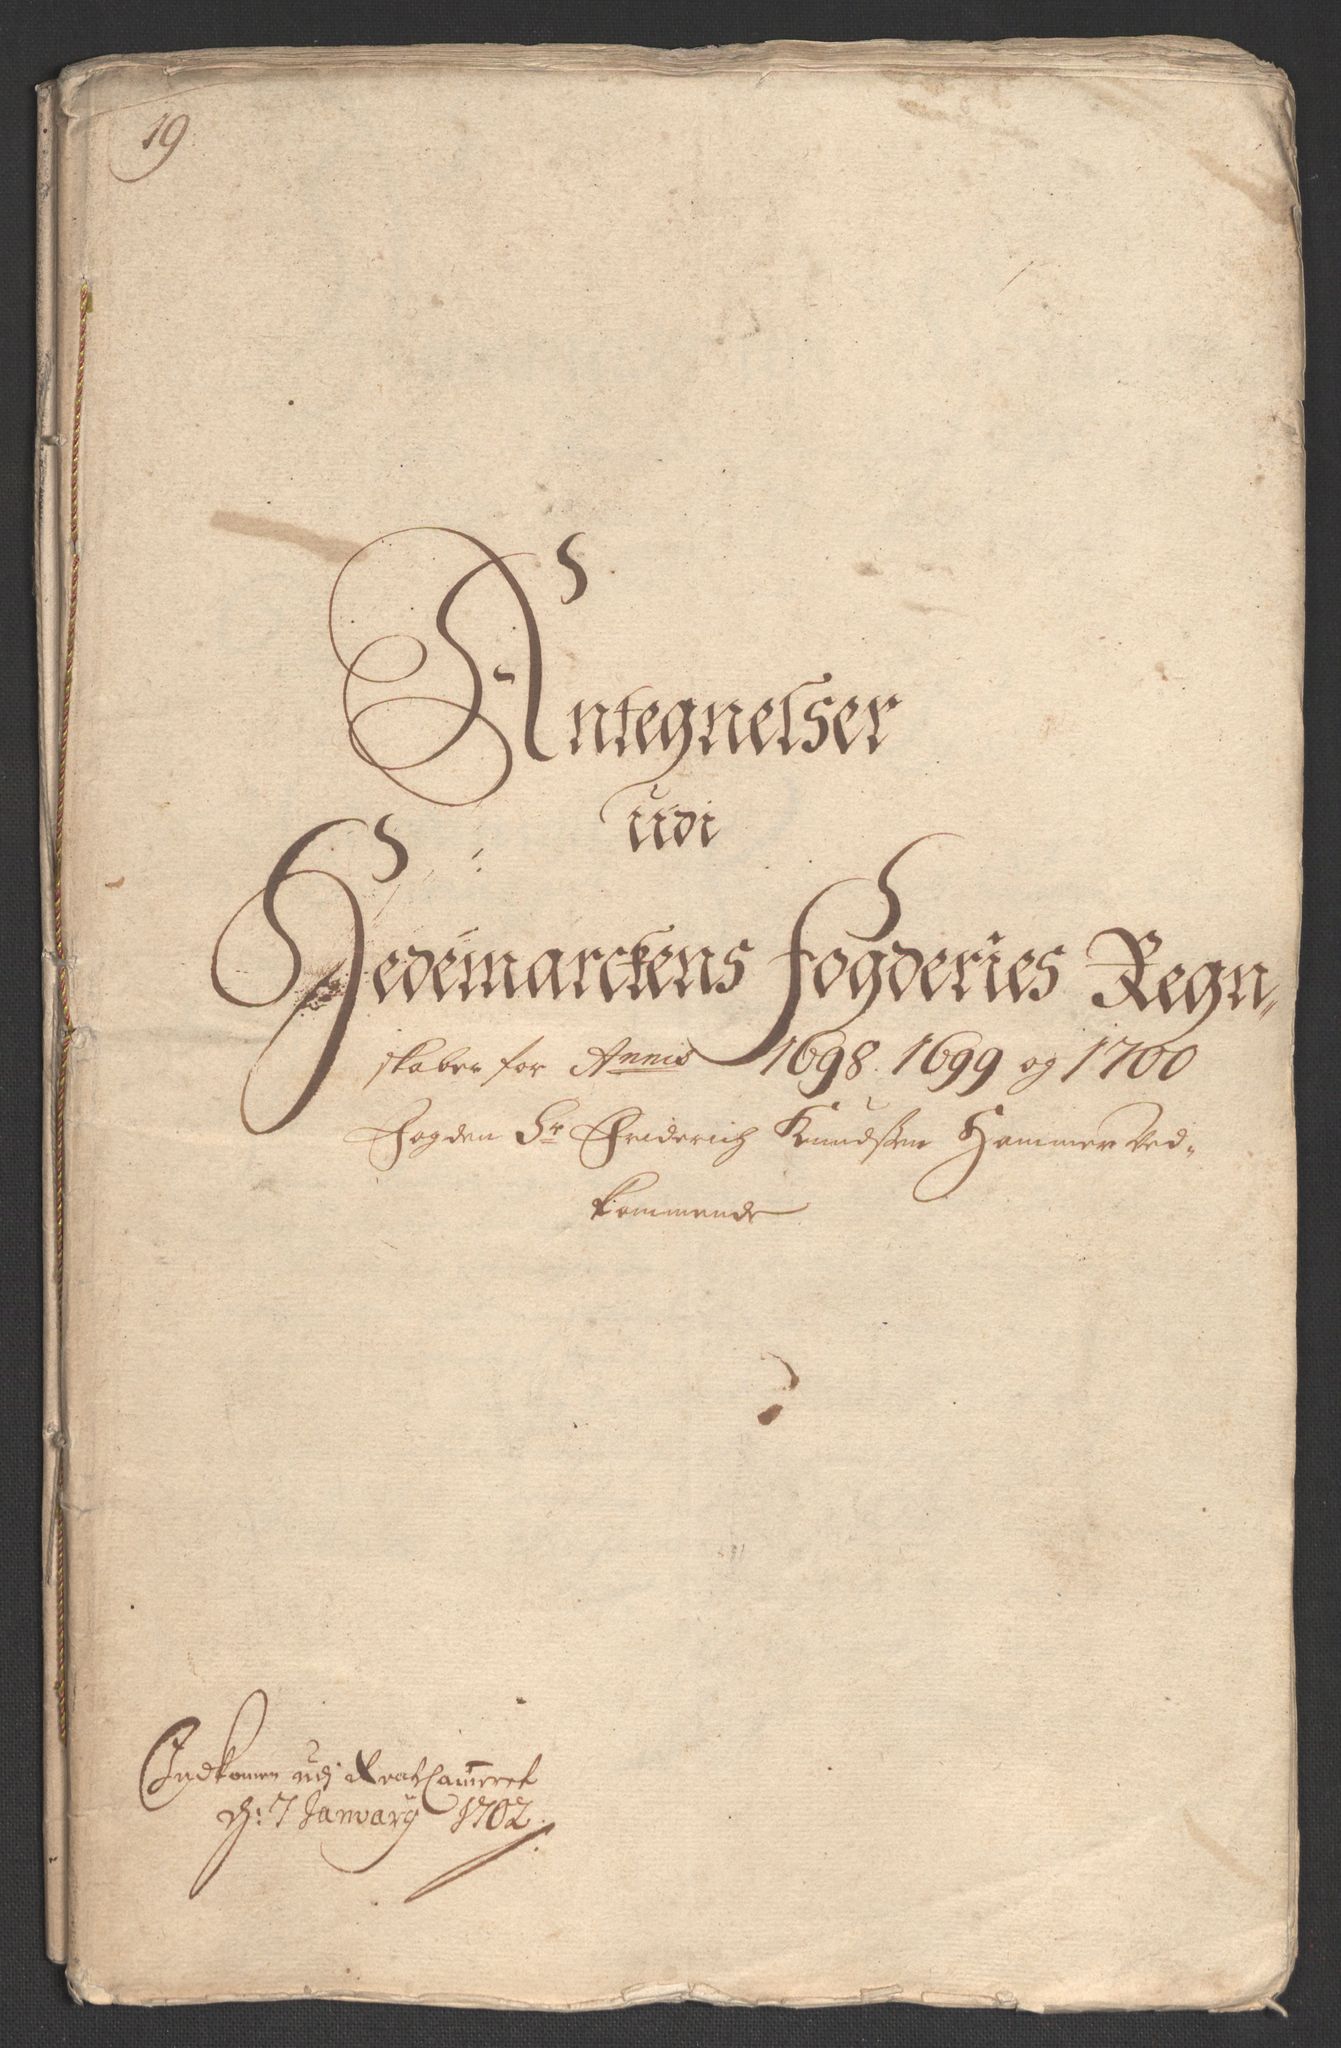 19
Antegnelser
udi
Hedemarckens Fogderies Regn-
skaber for Annis 1698. 1699 og 1700
Fogden Sr Friderich Knudssen Hammer Ved-
kommende
Indkomen udj RentCam̄eret
d: 7 January 1702.